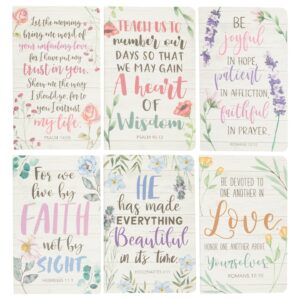 Let the morning
bring me word of
your unfailing love
for I have put my
trust in you.
Show me the way
I should go, for to
you I entrust
my life.
PSALM 143:8
TEACH US TO
number our
DAYS SO THAT
WE MAY GAIN
A heart
OF
Wisdom
PSALM 90:12
BE
joyful
IN HOPE,
patient
IN AFFLICTION
faithful
IN PRAYER.
ROMANS 12:12
For we
live by
FAITH
not by
SIGHT.
HE
has made
EVERYTHING
Beautiful
in its time.
ECCLESIASTES 3:11
BE DEVOTED TO
ONE ANOTHER IN
Love.
HONOR ONE ANOTHER ABOVE
Yourselves.
ROMANS 12:10